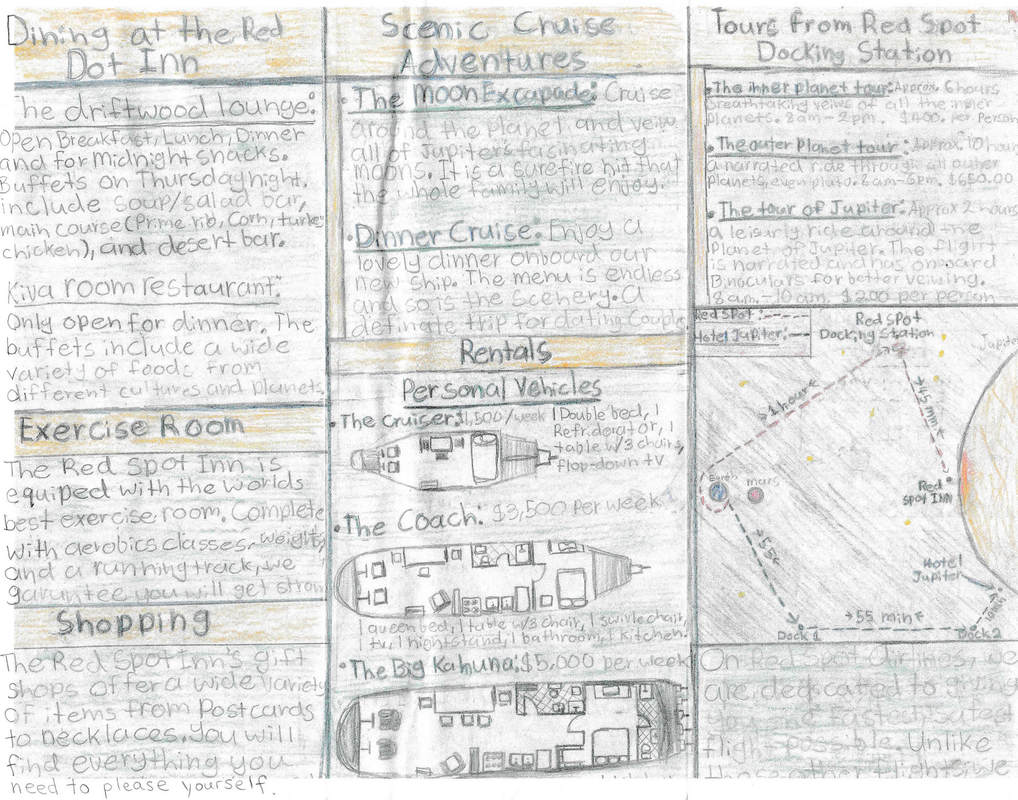 Dining at the Red
Dot Inn
The driftwood lounge:
Open Breakfast, Lunch, Dinner
and for midnight snacks.
Buffets on Thursday night.
include soup/salad bar,
main course (Prime rib, Corn, turkey
chicken), and desert bar.
Kiva room restaurant:
Only open for dinner. The
buffets include a wide
variety of foods from
different cultures and planets
Exercise Room
The Red Spot Inn is
equiped with the worlds
best exercise room. Complete
with aerobics classes, weights,
and a running track, we
garuntee you will get strong
Shopping
The Red Spot Inn's gift
shops offer a wide variety
of items from Postcards
to necklaces. You will
find everything you
need to please yourself.
Scenic Cruise
Adventures
• The Moon Excapade: Cruise
around the planet and veiw
all of Jupiter's fascinating
moons. It is a surefire hit that
the whole family will enjoy.
• Dinner Cruise: Enjoy a
lovely dinner onboard our
new ship. The menu is endless
and so is the scenery. a
definate trip for dating couple
Rentals
Personal Vehicles
• The Cruiser: $1,500/week 1 Double bed, 1
Refriderator, 1
table w/3 chairs,
flop-down tv
• The Coach: $3,500 per week
1 queen bed, 1 table w/3 chair, 1 swivle chair,
1 tv, 1 nightstand, 1 bathroom, 1 kitchen.
• The Big Kahuna: $5,000 per week
Tours from Red Spot
Docking Station
• The inner planet tour: Approx. 6 hours
breathtaking veiws of all the inner
planets. 8am-2pm. $400. per Person
• The outer Planet tour: Approx. 10 hours
a narrated ride through all outer
planets, even pluto. 8am-6pm. $650.00
• The tour of Jupiter: Approx 2 hours
a leisurly ride around the
Planet of Jupiter. The flight
is narrated and has onboard
Binoculars for better veiwing.
8 am.-10 am. $200 per person
Red Spot:
Hotel Jupiter:
Red Spot
Docking Station
Jupiter
1 hour
45 min
Earth
mars
Red
Spot INN
Hotel
Jupiter
55 min
Dock 1
Dock 2
On Red Spot Airlines, we
are dedicated to giving
you the fastest, safest
flight possible. Unlike
those other flights, we